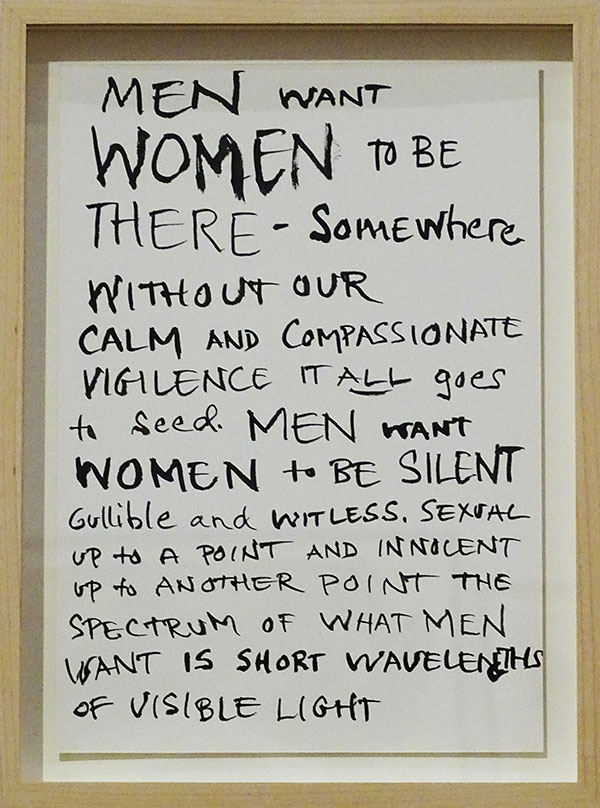 MEN WANT
WOMEN TO BE
THERE - SOMEWhere
WITHOUT OUR
CALM AND COMPASSIONATE
VIGILENCE IT ALL goes
to Seed. MEN WANT
WOMEN to BE SILENT
Gullible and WITLESS. SEXUAL
UP to A POINT AND INNOCENT
UP to ANOTHER POINT THE
SPECTRUM OF WHAT MEN
WANT IS SHORT WAVELENGTHS
OF VISIBLE LIGHT